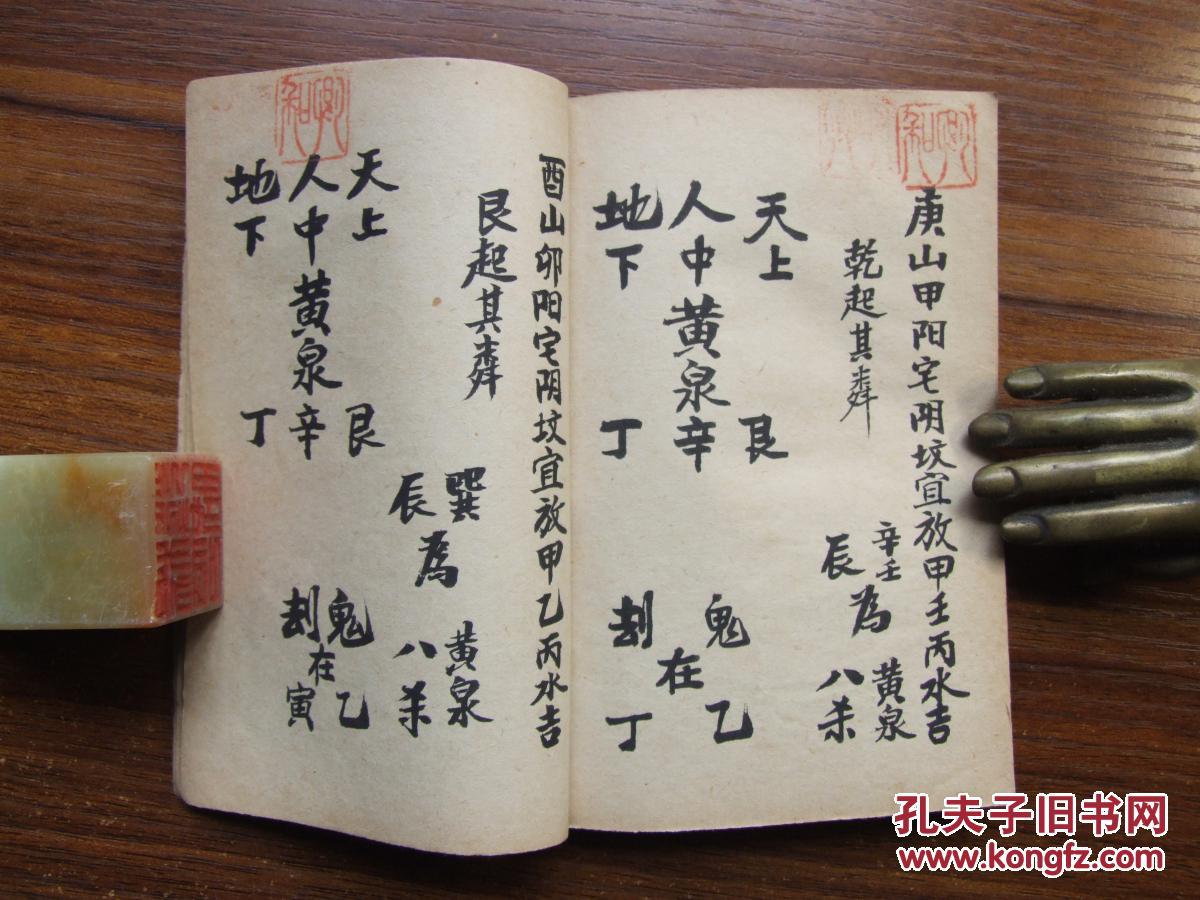 庚山甲阳宅阴坟宜放甲壬丙水吉
乾起其粦
辛壬
辰
為
黄泉
八杀
天上
人中
地下
黄泉
艮
辛
丁
鬼
刦
在
乙
丁
酉山卯阳宅阴坟宜放甲乙丙水吉
艮起其粦
巽
辰
為
黄泉
八杀
天上
人中
地下
黄泉
艮
辛
丁
鬼
刦
在
乙
寅
孔夫子旧书网
www.kongfz.com